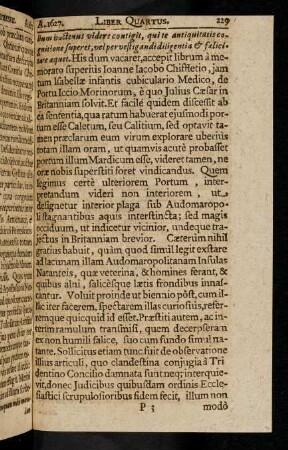 A. 1627. LIBER QUARTUS. 229
dum hactenus videre contigit, qui te antiquitatis co-
gnitione superet, vel pervestigandi diligentia & felici-
tate æquet. His dum vacaret, accepit librum à me-
morato superiùs Ioanne Iacobo Chiffletio, jam
tum Isabellæ infantis cubiculario Medico, de
Portu Iccio Morinorum, è quo Julius Cæsar in
Britanniam solvit. Et facilè quidem discessit ab
ea sententia, qua ratum habuerat ejusmodi por-
tum esse Caletum, seu Calitium, sed optavit ta-
men præclarum eum virum explorare uberiùs
totam illam oram, ut quamvis acutè probasset
portum illum Mardicum esse, videret tamen, ne
oræ nobis superstiti foret vindicandus. Quem
legimus certè ulteriorem Portum, inter-
pretandum videri non interiorem, ut
designetur interior plaga sub Audomaropo-
li stagnantibus aquis interstincta; sed magis
occiduum, ut indicetur vicinior, undeque tra-
jectus in Britanniam brevior. Cæterùm nihil
gratius habuit, quàm quod simul legit exstare
ad lacunam illam Audomaropolitanam Insulas
Natanteis, quæ veterina, & homines ferant, &
quibus alni, salicésque lætis frondibus innas-
cantur. Voluit proinde ut biennio pòst, cum il-
lac iter facerem, spectarem illas curiosiùs, refer-
remque quicquid id esset. Præstiti autem, ac in-
terim ramulum transmisi, quem decerpseram
ex non humili salice, suo cum fundo simul na-
tante. Sollicitus etiam tunc fuit de observatione
illius articuli, quo clandestina conjugia à Tri-
dentino Concilio damnata sunt; neq; interquie-
vit, donec Judicibus quibusdam ordinis Eccle-
siastici scrupulosioribus fidem fecit, illum non
P 3 modò